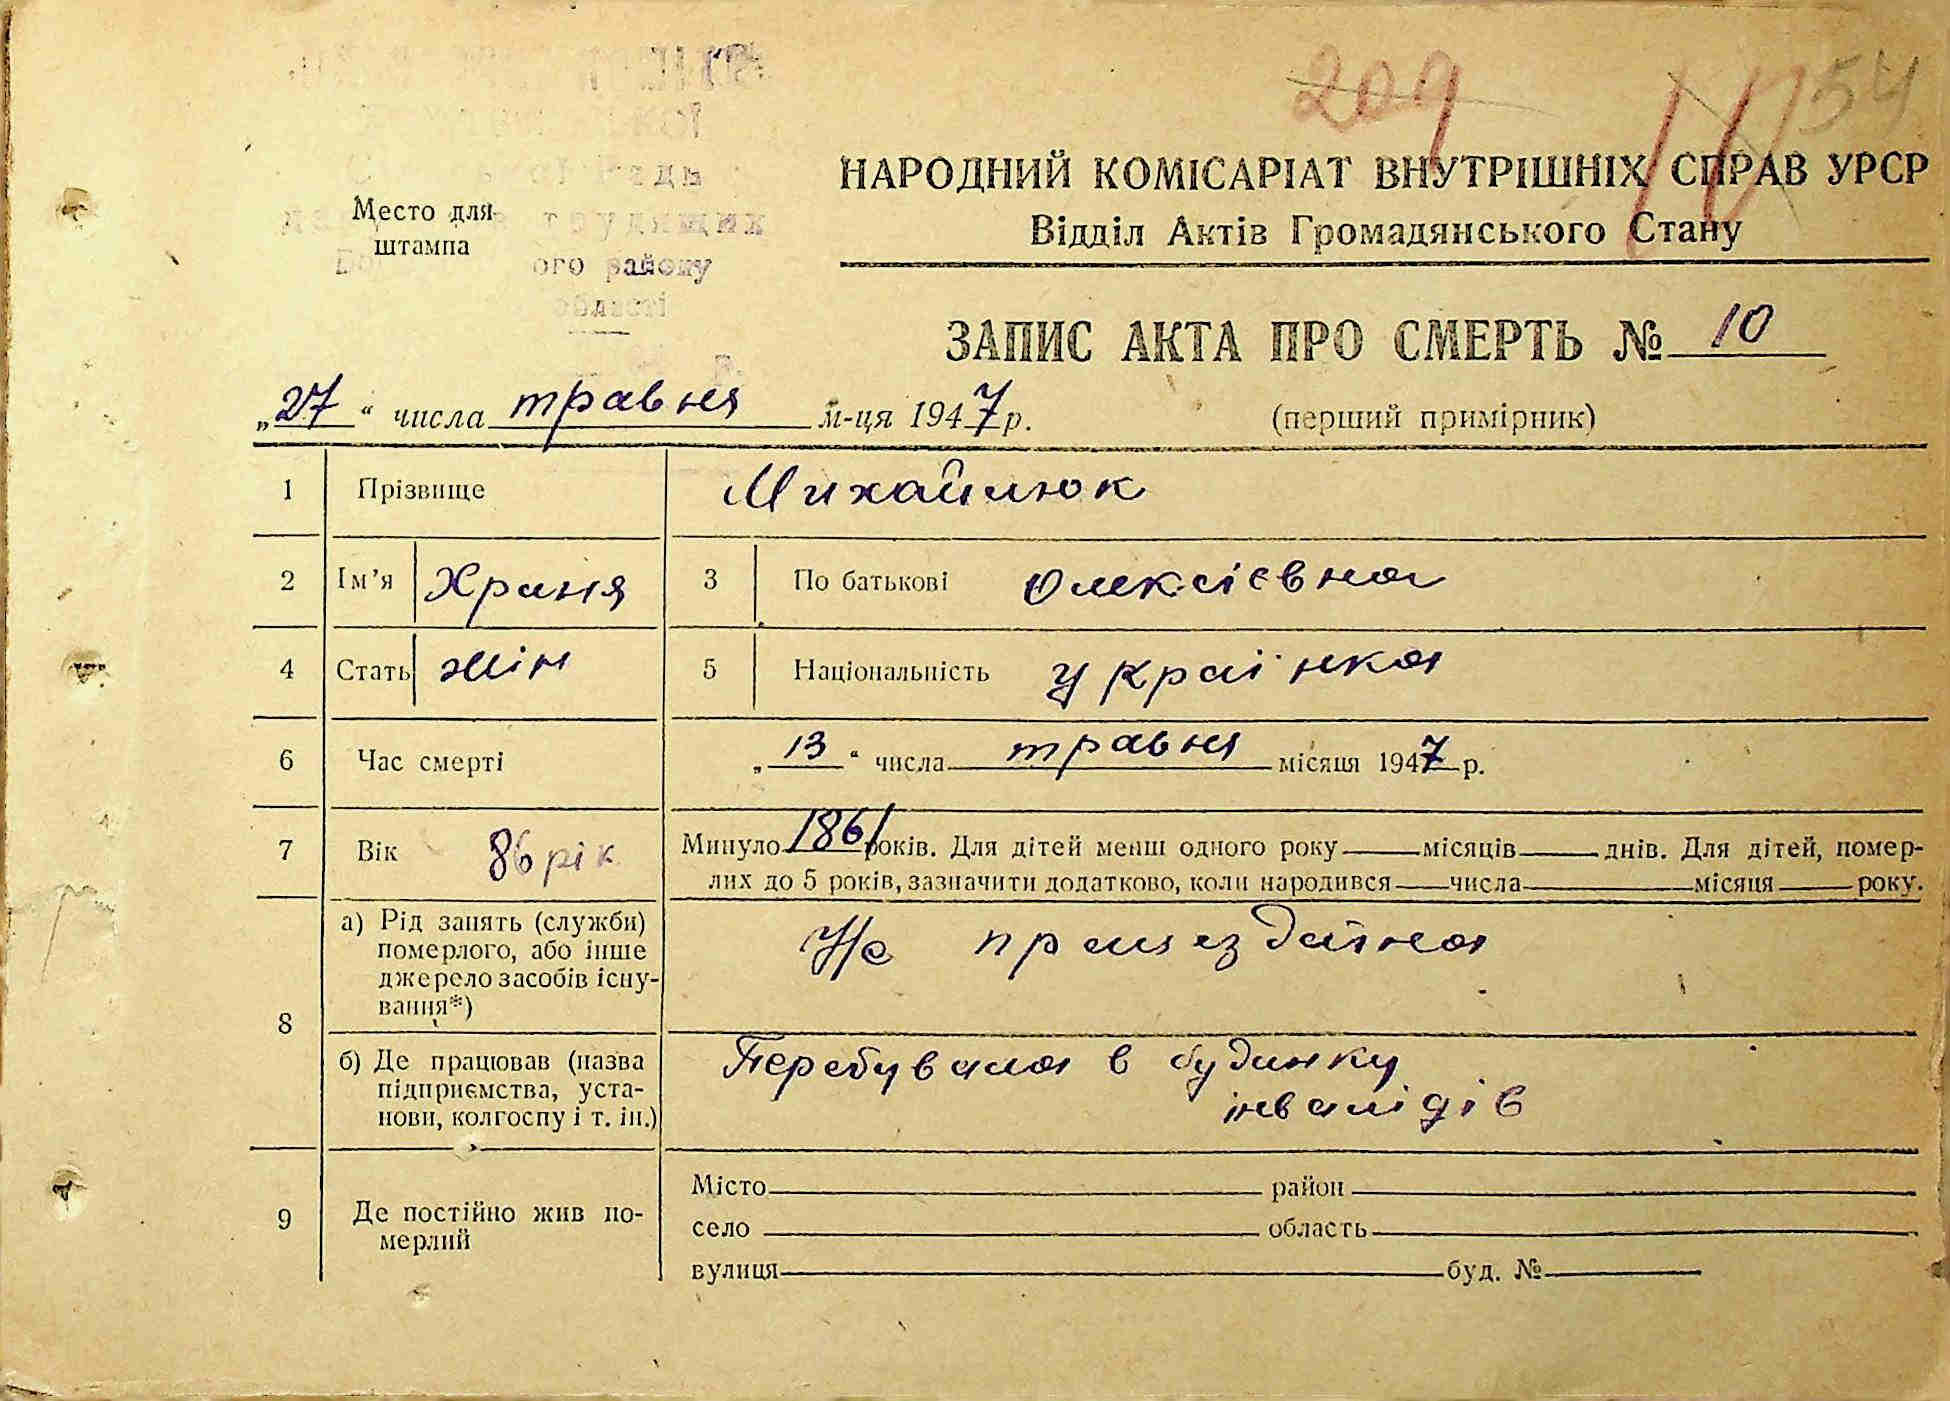 209 10 54
НАРОДНИЙ КОМІСАРІАТ ВНУТРІШНІХ СПРАВ УРСР
Відділ Актів Громадянського Стану
Место для
штампа
ого району
області
ЗАПИС АКТА ПРО СМЕРТЬ № 10
„27“ числа травня м-ця 1947 р. (перший примірник)
1 Прізвище Михайлюк
2 Ім'я Храня 3 По батькові Олексієвна
4 Стать жін 5 Національність українка
6 Час смерті „13“ числа травня місяця 1947 р.
7 Вік 86 рік Минуло 1861 років. Для дітей менш одного року місяців днів. Для дітей, помер-
лих до 5 років, зазначити додатково, коли народився числа місяця року.
8 а) Рід занять (служби)
померлого, або інше
джерело засобів існу-
вання*)
Не працездатна
б) Де працював (назва
підприємства, уста-
нови, колгоспу і т. ін.)
Перебувала в будинку
інвалідів
9 Де постійно жив по-
мерлий
Місто район
село область
вулиця буд. №